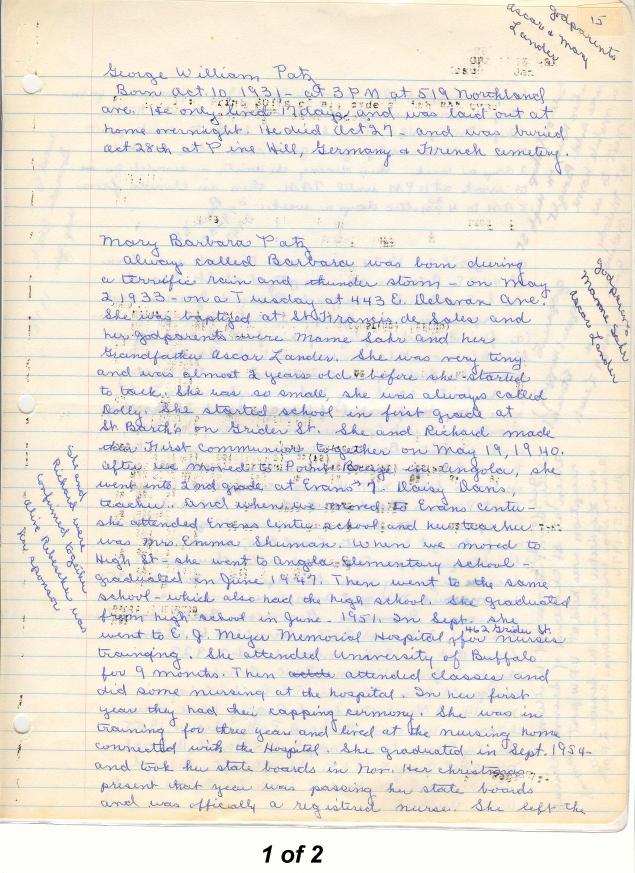 15
Godparents
Oscar & Mary
Lander
George William Patz
Born Oct. 10, 1931 - at 3 P.M at 519 Northland
ave. He only lived 17 days and was laid out at
home overnight. He died Oct 27 - and was buried
Oct 28th at Pine Hill, Germany & French cemetery.
Mary Barbara Patz
Always called Barbara was born during
a terrific rain and thunder storm - on May
2, 1933 - on a Tuesday at 443 E. Delavan Ave.
She was baptized at St. Francis de Sales and
her godparents were Mame Sahr and her
Grandfather Oscar Lander. She was very tiny
and was almost 2 years old before she started
to talk. She was so small, she was always called
Dolly. She started school in first grade at
St Barth's on Grider St. She and Richard made
their First Communion together on May 19, 1940.
After we moved to Point Breeze in Angola, she
went into 2nd grade at Evans #7. Daisy Davis,
teacher. And when we moved to Evans Center -
she attended Evans Center school and her teacher
was Mrs. Emma Shuman. When we moved to
High St - she went to Angola Elementary school -
graduated in June 1947. Then went to the same
school - which also had the high school. She graduated
from high school in June - 1951. In Sept. she
went to E. J. Meyer Memorial Hospital, 462 Grider St. for nurses
training. She attended University of Buffalo
for 9 months. Then attended classes and
did some nursing at the hospital. In her first
year they had their capping ceremony. She was in
training for three years and lived at the nursing home
connected with the Hospital. She graduated in Sept. 1954 -
and took her state boards in Nov. Her christmas
present that year was passing her state boards
and was offically a registered nurse. She left the
Godparents
Mame Sahr
Oscar Lander
She and
Richard were
confirmed together
was
her sponsor
1 of 2